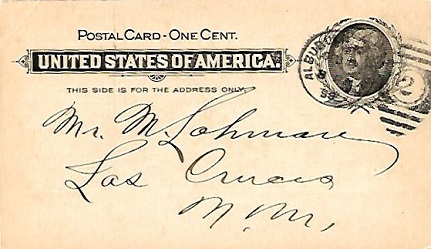 POSTAL CARD - ONE CENT.
UNITED STATES OF AMERICA.
THIS SIDE IS FOR THE ADDRESS ONLY.
Mr. M. Lohman
Las Cruces
N.M.